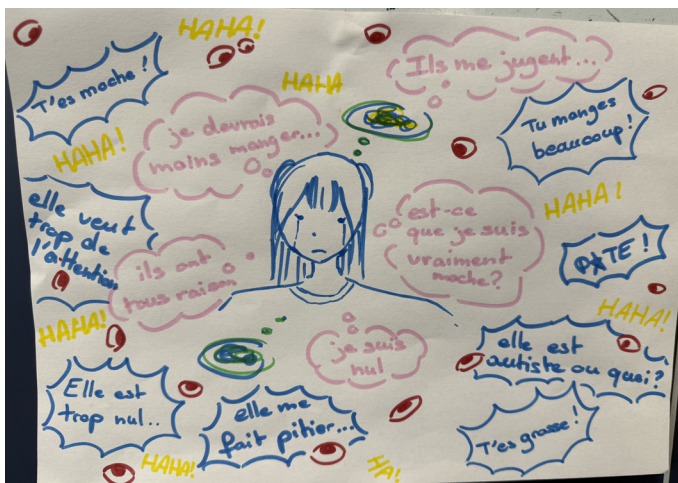 HAHA!
T'es moche !
HAHA
Ils me jugent...
je devrais
moins manger...
Tu manges
beaucoup !
HAHA!
elle veut
trop de
l'attention
est-ce
que je suis
vraiment
moche?
HAHA!
P*TE !
ils ont
tous raison
HAHA!
HAHA!
je suis
nul
elle est
autiste ou quoi?
Elle est
trop nul..
elle me
fait pitier...
T'es grosse!
HAHA!
HA!